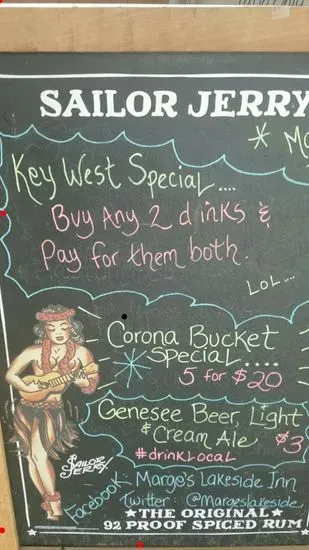 SAILOR JERRY
* Ma
Key West Special....
Buy Any 2 dinks &
Pay for them both.
LOL....
Corona Bucket
Special....
5 for $20
Genesee Beer, Light
& Cream Ale $3
#drinkLocal
SAILOR
JERRY
Facebook: Marge's Lakeside Inn
Twitter: @margeslakeside
★THE ORIGINAL★
★92 PROOF SPICED RUM